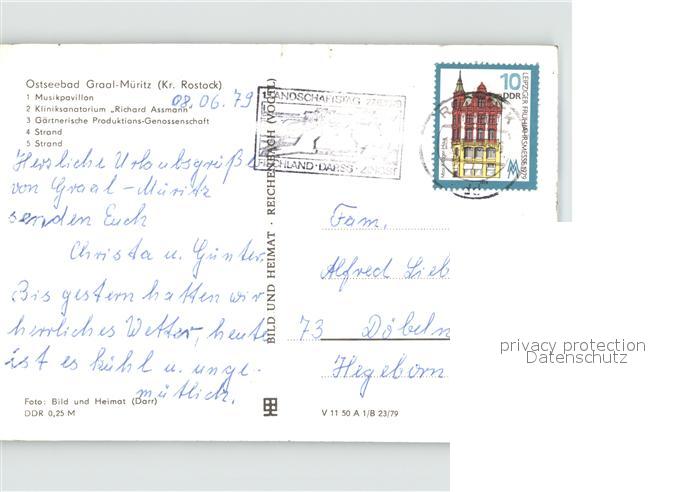 Ostseebad Graal-Müritz (Kr. Rostock)
1 Musikpavillon
2 Kliniksanatorium „Richard Assmann"
3 Gärtnerische Produktions-Genossenschaft
4 Strand
5 Strand
08.06.79
Herzliche Urlaubsgrüße
von Graal-Müritz
senden Euch
Christa u. Günter.
Bis gestern hatten wir
herrliches Wetter, heute
ist es kühl u. unge-
mütlich.
Foto: Bild und Heimat (Darr)
DDR 0,25 M
BILD UND HEIMAT · REICHENBACH (VOGTL)
LANDSCHAFTSTAG
FISCHLAND · DARSS · ZINGST
10
DDR
LEIPZIGER FRÜHJAHRSMESSE 1979
Fam.
Alfred Lieb
73 Döbeln
Hegeborn
V 11 50 A 1/B 23/79
privacy protection
Datenschutz